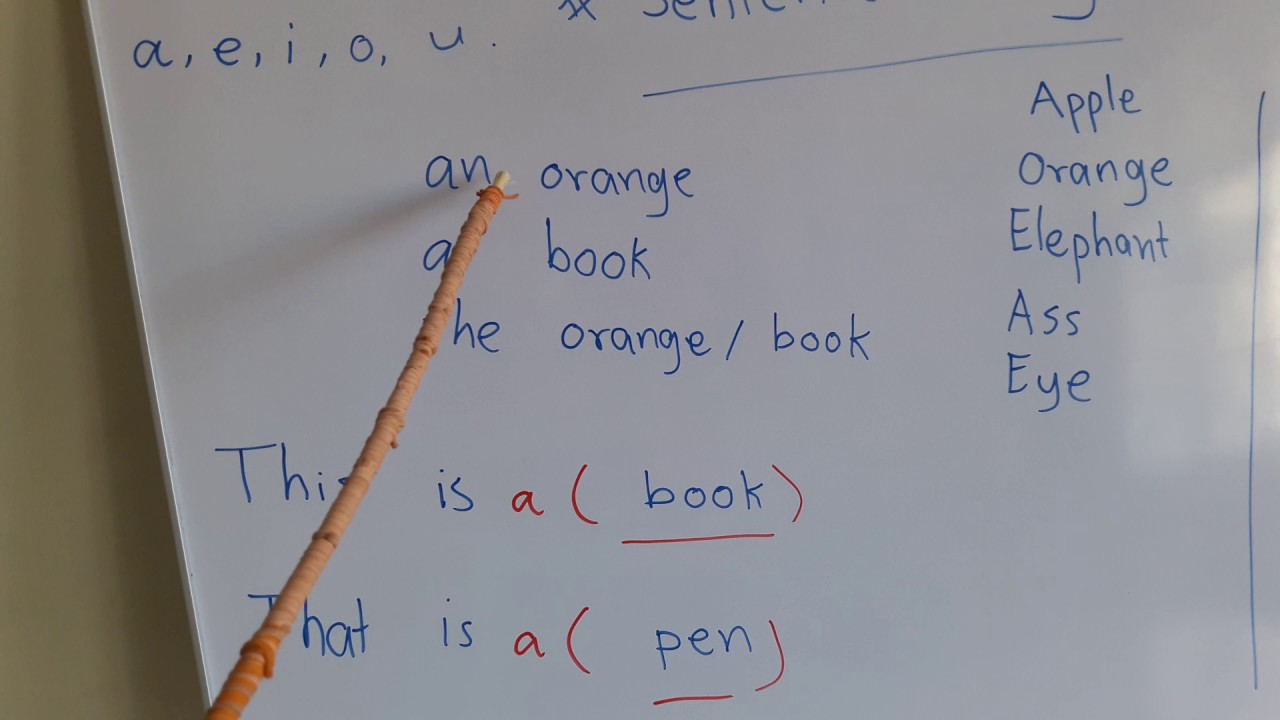 a, e, i, o, u.
an orange
a book
he orange / book
Apple
Orange
Elephant
Ass
Eye
This is a ( book )
That is a ( pen )